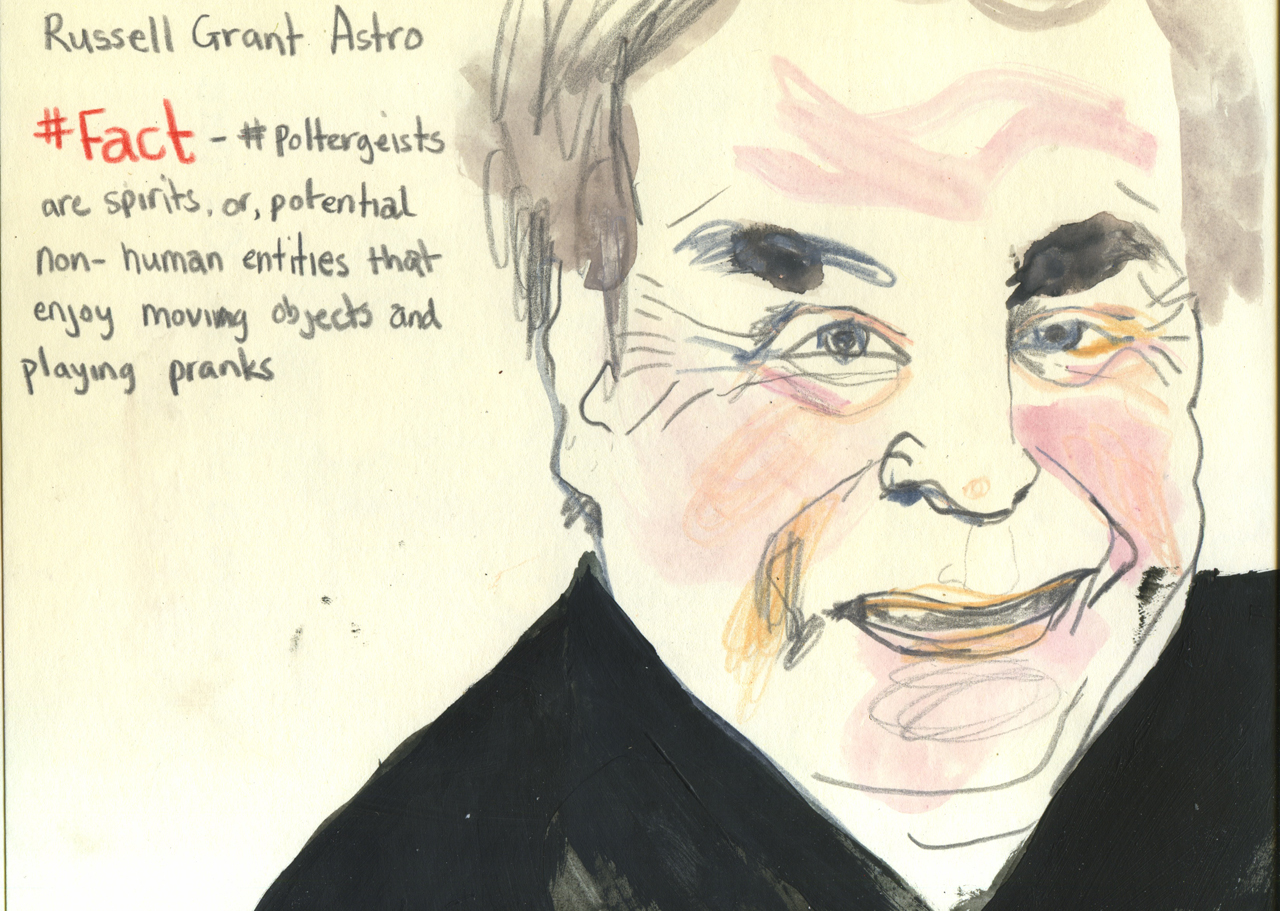 Russell Grant Astro
#Fact - #poltergeists
are spirits, or, potential
non-human entities that
enjoy moving objects and
playing pranks